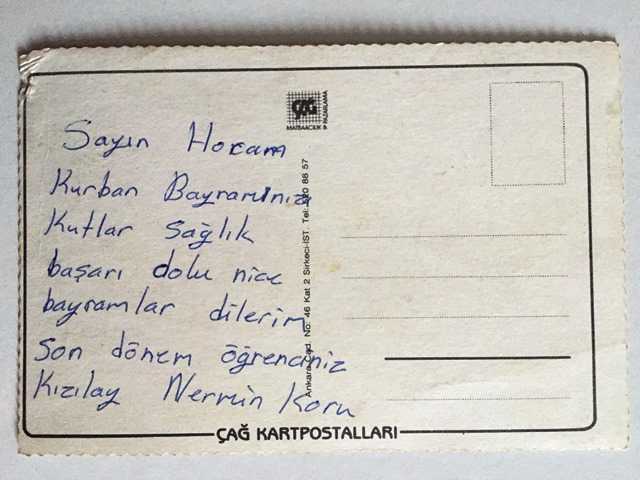 Sayın Hocam
Kurban Bayramınızı
Kutlar Sağlık
başarı dolu nice
bayramlar dilerim
Son dönem öğrenciniz
Kızılay Nermin Koru
ÇAĞ
MATBAACILIK & PAZARLAMA
Ankara Cad. No: 46 Kat 2 Sirkeci-İST. Tel: 520 86 57
ÇAĞ KARTPOSTALLARI